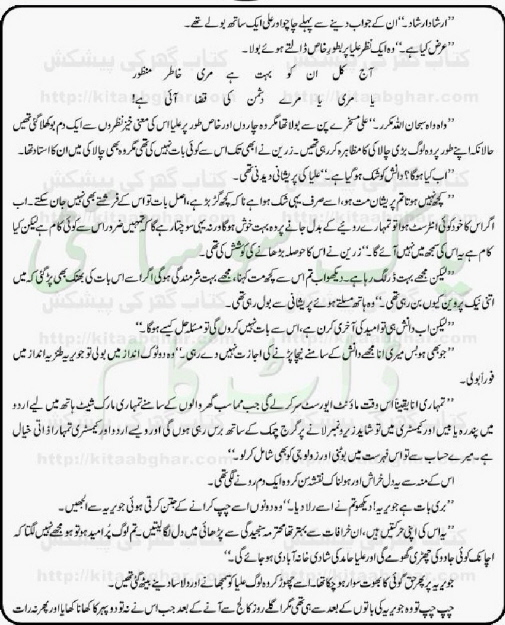 "ارشاد ارشاد۔" ان کے جواب دینے سے پہلے چاچو اور علی ایک ساتھ بولے تھے۔
"عرض کیا ہے۔" وہ ایک نظر علیا پر بطور خاص ڈالتے ہوئے بولا۔
آج کل ان کو بہت ہے مری خاطر منظور
یا مری یا مرے دشمن کی قضا آئی ہے!
"واہ واہ سبحان اللہ مکرر۔" علی مسخرے پن سے بولا تھا مگر وہ چاروں اور خاص طور پر علیا اس کی معنی خیز نظروں سے ایک دم بوکھلا گئی تھیں
حالانکہ اپنے طور پر وہ لوگ بڑی چالاکی کا مظاہرہ کر رہی تھیں۔ زرین نے ابھی تک اس سے کوئی بات نہیں کی تھی مگر وہ بھی چالاکی میں ان کا استاد تھا۔
"اب کیا ہوگا؟ دانش کو شک ہو گیا ہے۔" علیا کی پریشانی دیدنی تھی۔
"کچھ نہیں ہوتا تم پریشان مت ہو، اسے صرف یہی شک ہوا ہے نا کہ کچھ گڑبڑ ہے، اصل بات تو اس کے فرشتے بھی نہیں جان سکتے۔ اب
اگر اس کا خود کوئی انٹرسٹ ہوا تو تمہارے رویے کے بدل جانے پر وہ بہت خوش ہوگا ورنہ یہی سوچتا رہے گا کہ تمہیں ضرور اس سے کوئی کام ہے لیکن کیا
کام ہے یہ اس کی سمجھ میں نہیں آئے گا۔" زرین نے اس کا حوصلہ بڑھانے کی کوشش کی تھی۔
"لیکن مجھے بہت ڈر لگ رہا ہے۔ دیکھو اب تم اس سے کچھ مت کہنا، مجھے بہت شرمندگی ہوگی اگر اسے اس بات کی بھنک بھی پڑ گئی کہ میں
اتنی نیک پروین کیوں بن رہی تھی۔" وہ ہاتھ مسلتے ہوئے پریشانی سے بول رہی تھی۔
"لیکن اب دانش ہی تو امید کی آخری کرن ہے، اس سے بات نہیں کروں گی تو مسئلہ حل کیسے ہوگا۔"
"جو بھی ہو بس میری انا مجھے دانش کے سامنے نیچا پڑنے کی اجازت نہیں دے رہی۔" وہ دو ٹوک انداز میں بولی تو جویریہ طنزیہ انداز میں
فوراً بولی۔
"تمہاری انا یقیناً اس وقت ماؤنٹ ایورسٹ سر کرلے گی جب مما سب گھر والوں کے سامنے تمہاری مارک شیٹ ہاتھ میں لیے اردو
میں پندرہ یا بیس اور کیمسٹری میں تو شاید زیرو نمبر لانے پر گرج چمک کے ساتھ برس رہی ہوں گی اور ویسے اردو اور کیمسٹری تمہارا ذاتی خیال
ہے۔ میرے حساب سے تو اس فہرست میں بوٹنی اور زولوجی کو بھی شامل کرلو۔"
اس کے منہ سے یہ دل خراش اور ہولناک نقشہ سن کر وہ ایک دم رونے لگی تھی۔
"بری بات ہے جویریہ! دیکھو تم نے اسے رلا دیا۔" وہ دونوں اسے چپ کرانے کے جتن کرتی ہوئی جویریہ سے الجھیں۔
"یہ اس کی اپنی حرکتیں ہیں، ان خرافات سے بہتر تھا محترمہ سنجیدگی سے پڑھائی میں دل لگا لیتیں۔ تم لوگ پُرامید ہو تو ہو مجھے نہیں لگتا کہ
اچانک کوئی جادو کی چھڑی گھومے گی اور علیا حامد کی شادی خانہ آبادی ہو جائے گی۔"
جویریہ پر پھر حق گوئی کا بھوت سوار ہو چکا تھا۔ اسے چھوڑ کر وہ لوگ علیا کو سمجھانے اور دلاسا دینے بیٹھ گئی تھیں۔
چپ چپ تو وہ جویریہ کی باتوں کے بعد سے ہی تھی مگر اگلے روز کالج سے آنے کے بعد جب اس نے نہ تو دوپہر کا کھانا کھایا اور پھر نہ رات
کتاب گھر کی پیشکش
http://kitaabghar.com
پاک سوسائٹی
ڈاٹ کام